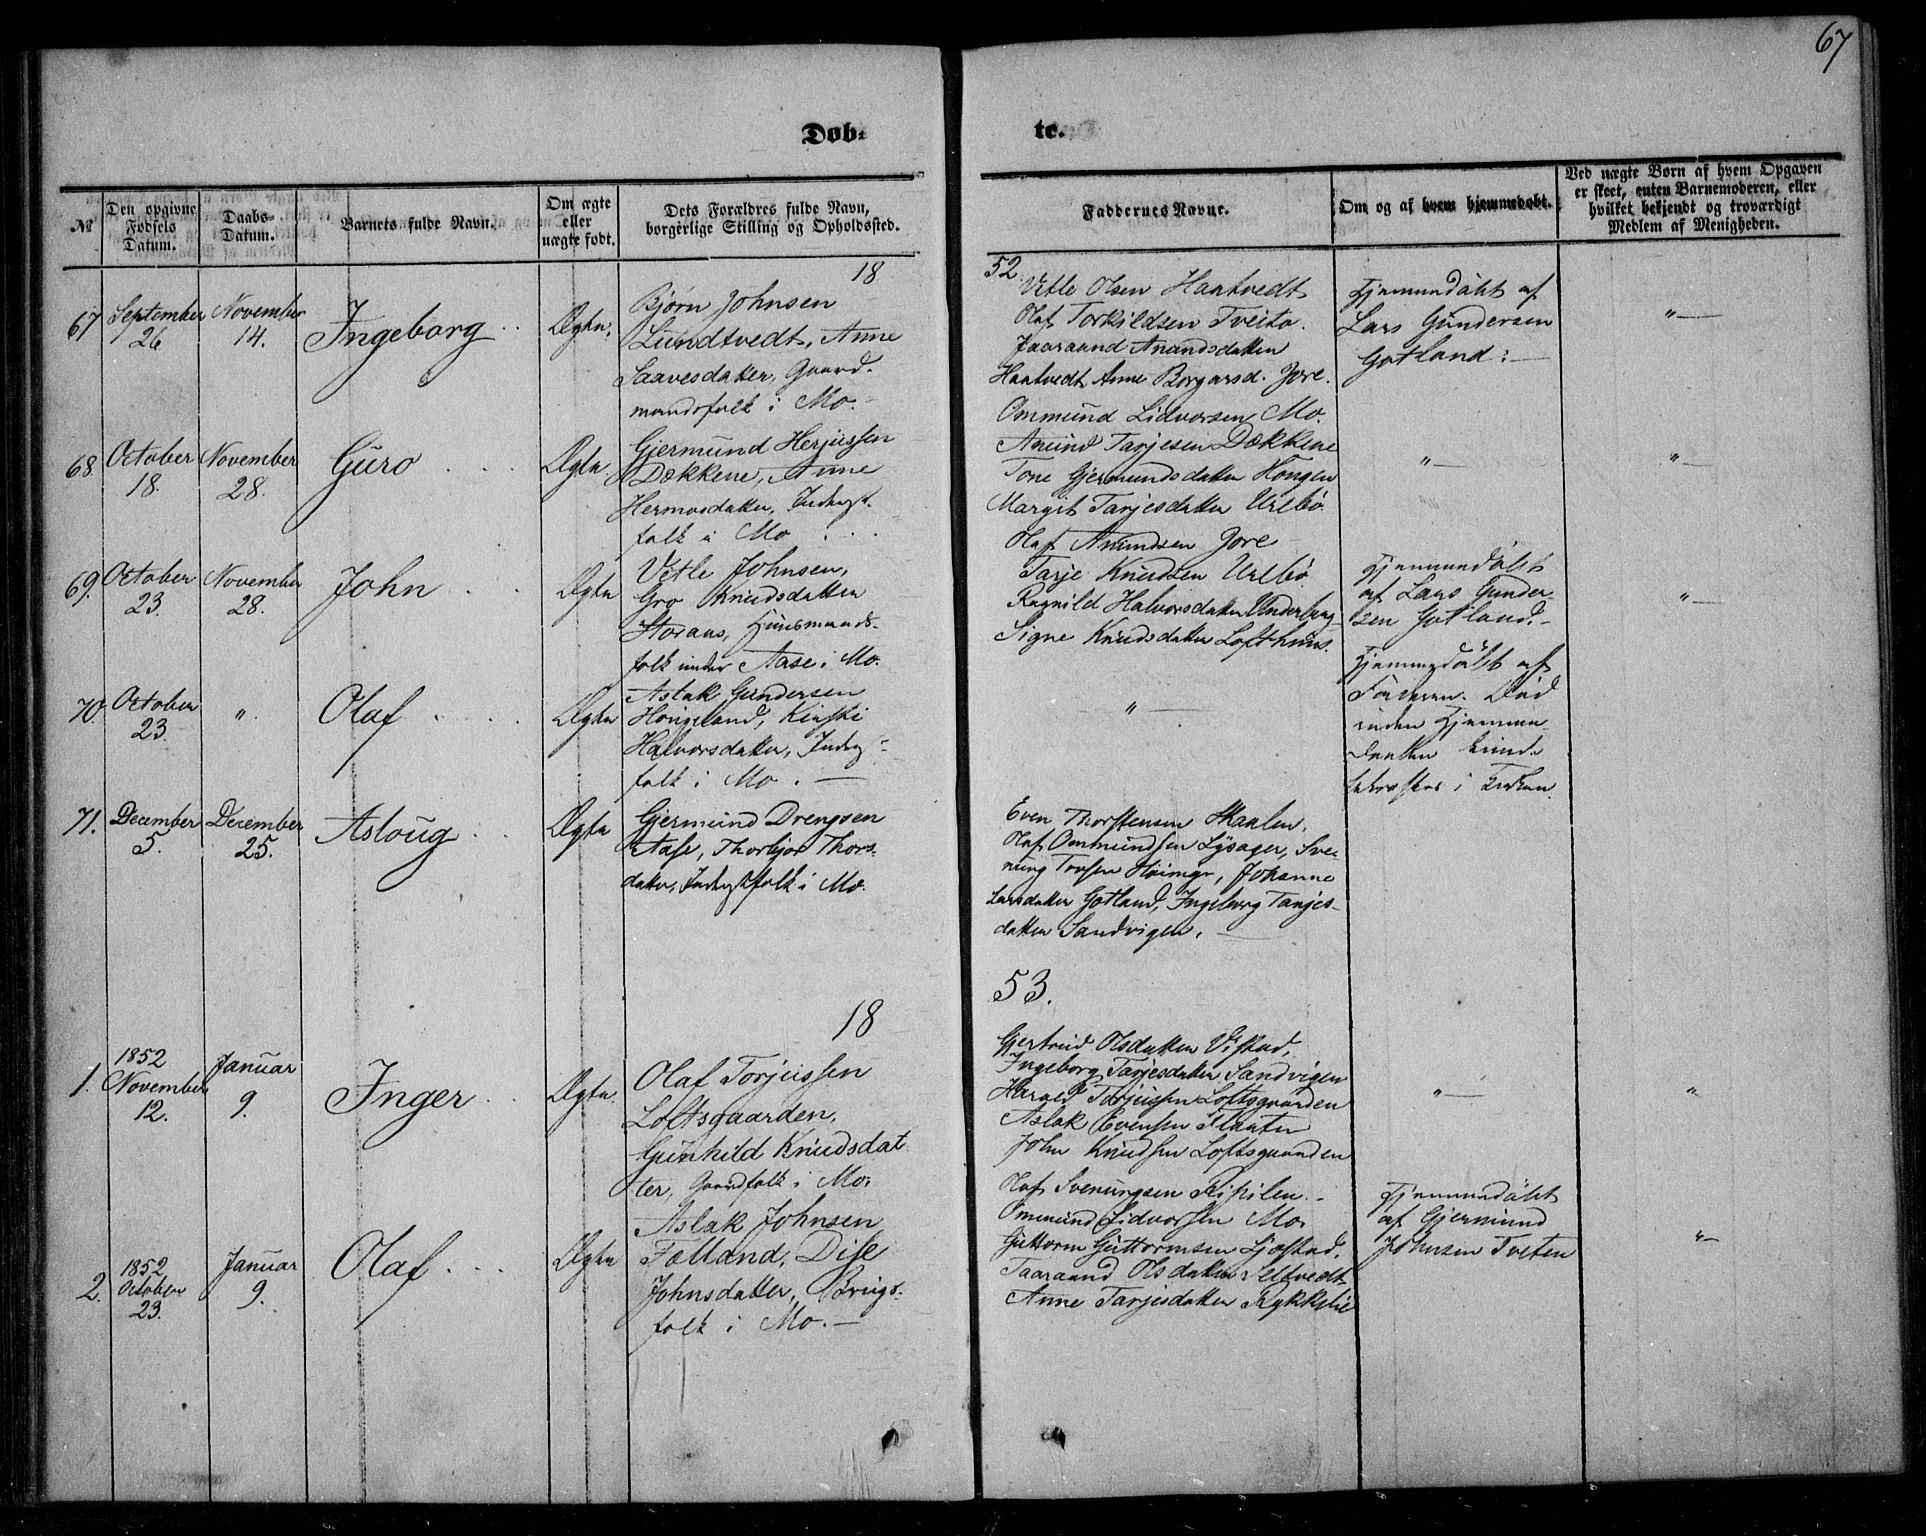 67
Døb-
te.
№
Den opgivne Fødsels Datum.
Daabs-Datum.
Barnets fulde Navn.
Om ægte eller uægte født.
Dets Forældres fulde Navn, borgerlige Stilling og Opholdssted.
Faddernes Navne.
Om og af hvem hjemmedøbt.
Ved uægte Børn af hvem Opgaven er skeet, enten Barnemoderen, eller hvilket bekjendt og troværdigt Medlem af Menigheden.
18
52
67
September 26
November 14.
Ingeborg
Ægte.
Bjørn Johnsen
Lundtvedt, Anne
Saavesdatter, Gaard-
mandsfolk i Mo.
Vetle Olsen Haatvedt
Olaf Torkildsen Tveito.
Jaaraand Anundsdatter
Haatvedt Anne Borgarsd. Jore.
Ommund Lidvorsen Mo.
Hjemmedöbt af
Lars Gundersen
Gotland.
"—
68.
October 18.
November 28.
Guro
Ægte
Gjermund Herjussen
Dækkene, Anne
Hermosdatter, Inderst-
folk i Mo
Anund Tarjesen Dækkene
Tone Gjermundsdatter Hougen
Margit Tarjesdatter Urlbö.
Olaf Anundsen Jore
"—
"—
69.
October 23.
November 28.
John
Ægte
Vetle Johnsen,
Gro Knudsdatter
Storaas, Huusmands-
folk under Aase i Mo.
Tarje Knudsen Urlbö
Ragnild Halvorsdatter Underberg
Signe Knudsdatter Lofthuus.
Hjemmedöbt
af Lars Gunder-
sen Gotland.
"—
70.
October 23.
"
Olaf
Ægte
Aslak Gundersen
Hougeland, Kirsti
Halvorsdatter, Inderst-
folk i Mo.
"—
Hjemmedöbt af
Faderen. Död
inden Hjemme-
Daaben kunde
bekræftes i Kirken.
71.
December 5.
December 25.
Asloug
Ægte
Gjermund Drengsen
Aase, Thorbjør Thors-
datter, Inderstfolk i Mo.
Even Thorstensen Skaalen.
Olaf Ommundsen Lysager, Sve-
nung Torsen Haimyr, Johanne
Larsdatter Gotland, Ingeborg Tarjes-
datter Sandvigen.
18
53.
1.
1852 November 12.
Januar 9.
Inger
Ægte.
Olaf Torjussen
Loftsgaarden,
Gunhild Knudsdat
ter, Gaardfolk i Mo.
Gjertrud Olsdatter Vistad,
Ingeborg Tarjesdatter Sandvigen
Harald Torjussen Loftsgaarden
Aslak Evensen Flaaten
John Knudsen Loftsgaarden
"—
"
2.
1852 October 23.
Januar 9.
Olaf
Ægte
Aslak Johnsen
Folland, Dise
Johnsdatter, Brugs-
folk i Mo.
Olaf Svenungsen
Ommund Lidvorsen Mo.
Guttorm Guttormsen
Taaraand Olsdatter
Anne Tarjesdatter Rykkelie
Hjemmedöbt
af Gjermund
Johnsen Tveten
"—